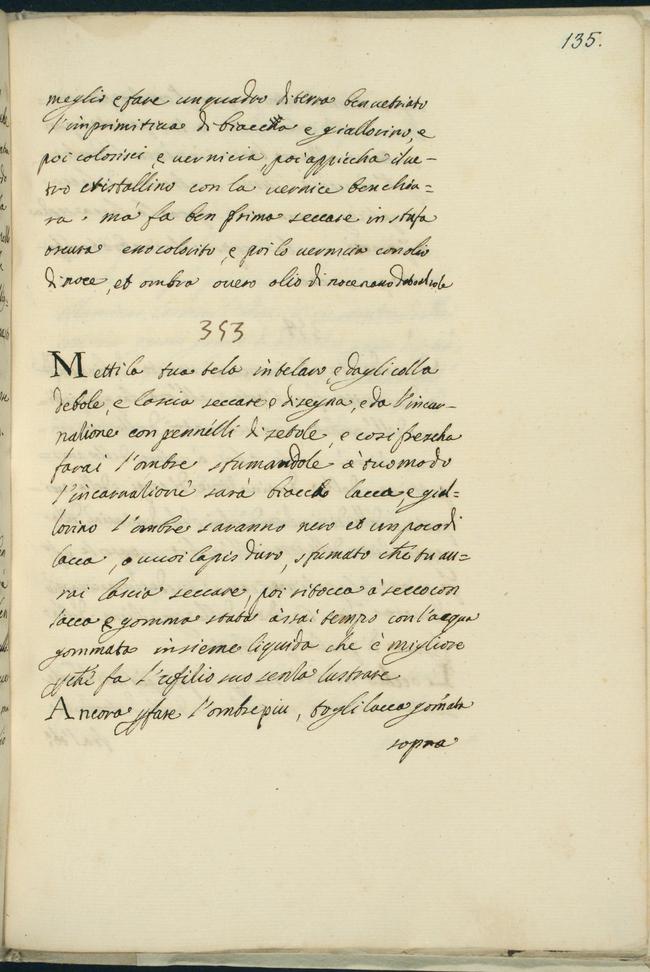 135.
meglio e fare un quadro di terra ben vetriato
l'inprimitiua di biaccha e giallorino, e
poi colorisci, e uernicia, poi appiccha il ue-
tro cristallino con la uernice ben chia=
ra. má fa ben prima seccare in stufa
oscura esso colorito, e poi lo uernicia con olio
di noce, et ombra ouero olio di noce
353
Metti la tua tela in telaro, e dagli colla
debole, e lascia seccare e disegna, e da l'incar-
natione con pennelli di setole, e cosi frescha
farai l'ombre sfumandole á tuo modo
l'incarnationi sará biacha lacca, e gial=
lorino l'ombre saranno nero et un poco di
lacca, o uuoi lapis duro, sfumato che tu au=
rai lascia seccare, poi ritocca á secco con
lacca e gomma stata ássai tempo con l'acqua
gommata insieme liquida che é migliore
pche fa l'effetto suo senza lustrare
Ancora p fare l'ombre piu, togli lacca gom̃ata
sopra